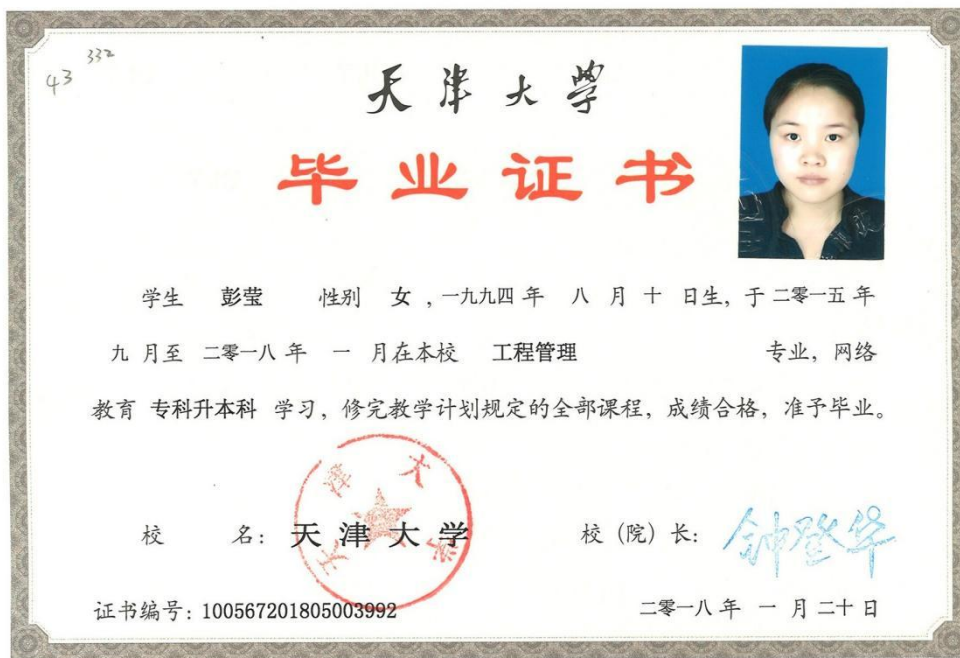 332
43
天津大学
毕业证书
学生 彭莹 性别 女 ，一九九四 年 八 月 十 日生，于 二零一五 年
九 月至 二零一八 年 一 月在本校 工程管理 专业，网络
教育 专科升本科 学习，修完教学计划规定的全部课程，成绩合格，准予毕业。
天津大学
校 名：天津大学 校（院）长：钟登华
证书编号：100567201805003992 二零一八 年 一 月 二十 日